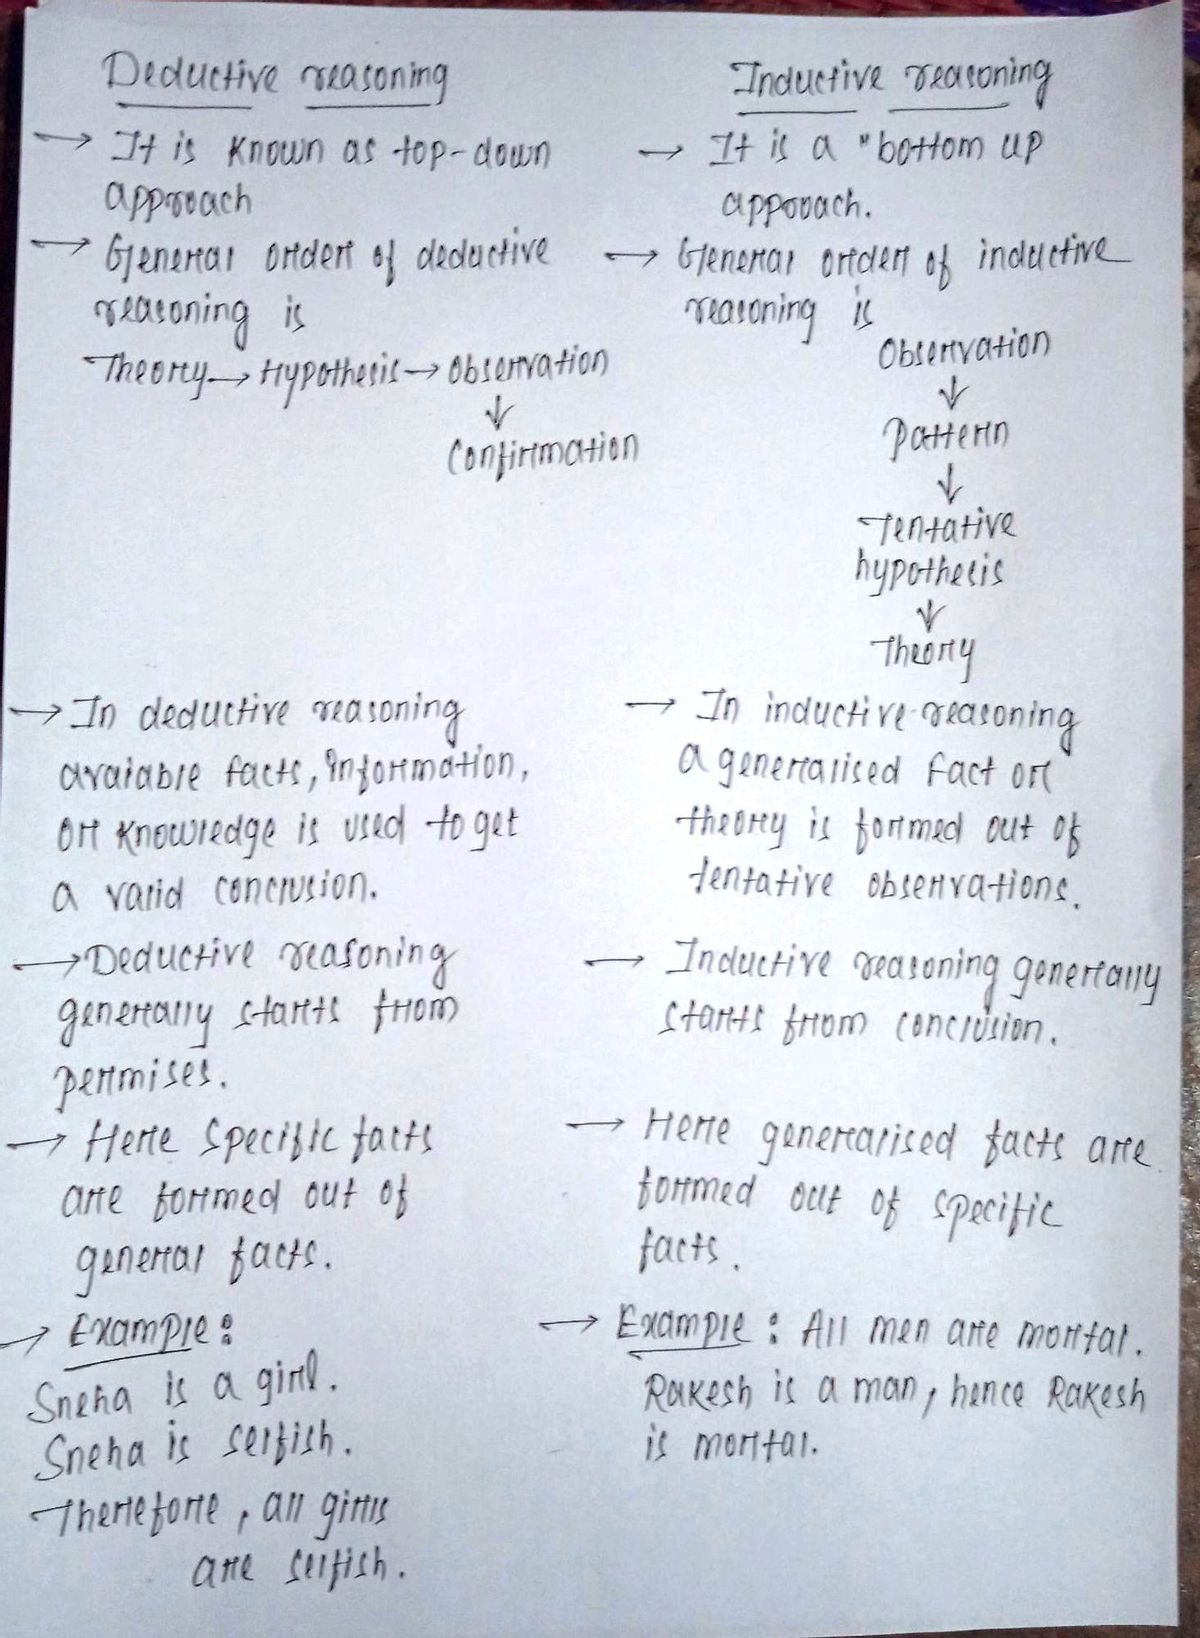 Deductive reasoning
→ It is known as top-down
approach
→ General order of deductive
reasoning is
Theory → Hypothesis → Observation
↓
Confirmation
→ In deductive reasoning
avaiable facts, information,
or knowledge is used to get
a valid conclusion.
→ Deductive reasoning
generally starts from
permises.
→ Here specific facts
are formed out of
general facts.
→ Example:
Sneha is a girl.
Sneha is selfish.
Therefore, all girls
are selfish.
Inductive reasoning
→ It is a "bottom up
approach.
→ General order of inductive
reasoning is
Observation
↓
Pattern
↓
Tentative
hypothesis
↓
Theory
→ In inductive reasoning
a generalised fact or
theory is formed out of
tentative observations.
→ Inductive reasoning generally
starts from conclusion.
→ Here generalised facts are
formed out of specific
facts.
→ Example : All men are mortal.
Rakesh is a man, hence Rakesh
is mortal.